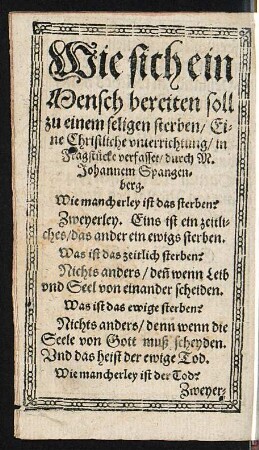 Wie sich ein
Mensch bereiten soll
zu einem seligen sterben/ Ei-
ne Christliche vnterrichtung/ in
Fragstücke verfasset/ durch M.
Johannem Spangen-
berg.
Wie mancherley ist das sterben?
Zweyerley. Eins ist ein zeitli-
ches/ das ander ein ewigs sterben.
Was ist das zeitlich sterben?
Nichts anders/ deñ wenn Leib
vnd Seel von einander scheiden.
Was ist das ewige sterben?
Nichts anders/ denn wenn die
Seele von Gott muß scheyden.
Vnd das heist der ewige Tod.
Wie mancherley ist der Tod?
Zweyer-